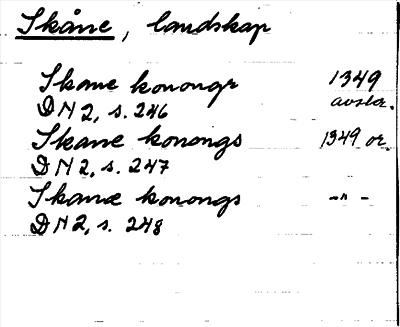 Skåne, landskap
Skane konongr 1349
DN 2, s. 246 avskr.
Skane konongs 1349 or.
DN 2, s. 247
Skanæ konongs -"-
DN 2, s. 248